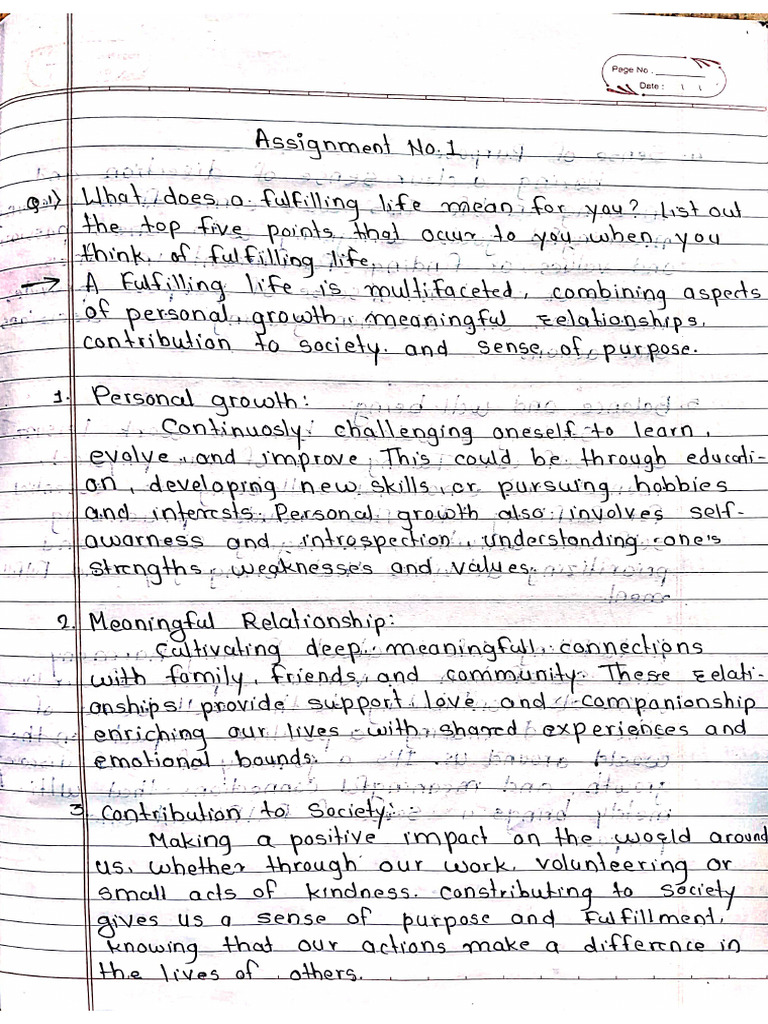 Page No.
Date :
Assignment No.1
Q.1) What does a fulfilling life mean for you? List out
the top five points that occur to you when you
think of fulfilling life.
→ A Fulfilling life is multifaceted, combining aspects
of personal growth, meaningful relationships,
contribution to society. and sense of purpose.
1. Personal growth:
Continuosly challenging oneself to learn,
evolve and improve. This could be through educati-
on, developing new skills, or pursuing hobbies
and interests. Personal growth also involves self-
awarness and introspection, understanding one's
strengths, weaknesses and values.
2. Meaningful Relationship:
Cultivating deep, meaningfull connections
with family, friends, and community. These relati-
onships provide support, love and companionship
enriching our lives with shared experiences and
emotional bounds.
3. Contribution to Society:
Making a positive impact on the world around
us, whether through our work, volunteering or
small acts of kindness. constributing to society
gives us a sense of purpose and fulfillment,
knowing that our actions make a difference in
the lives of others.